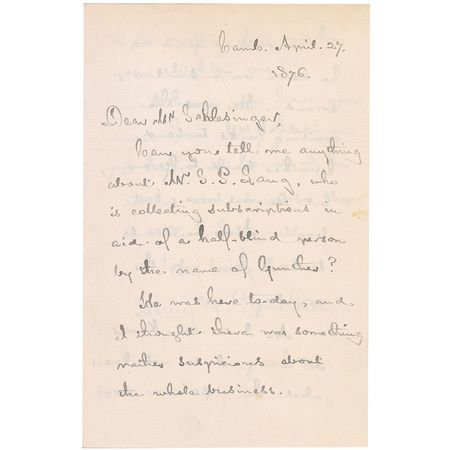 Camb. April. 27.
1876.
Dear Mr Schlesinger,
Can you tell me anything
about Mr. S. P. Lang, who
is collecting subscriptions in
aid of a half-blind person
by the name of Gunther?
He was here to-day, and
I thought there was something
rather suspicious about
the whole business.